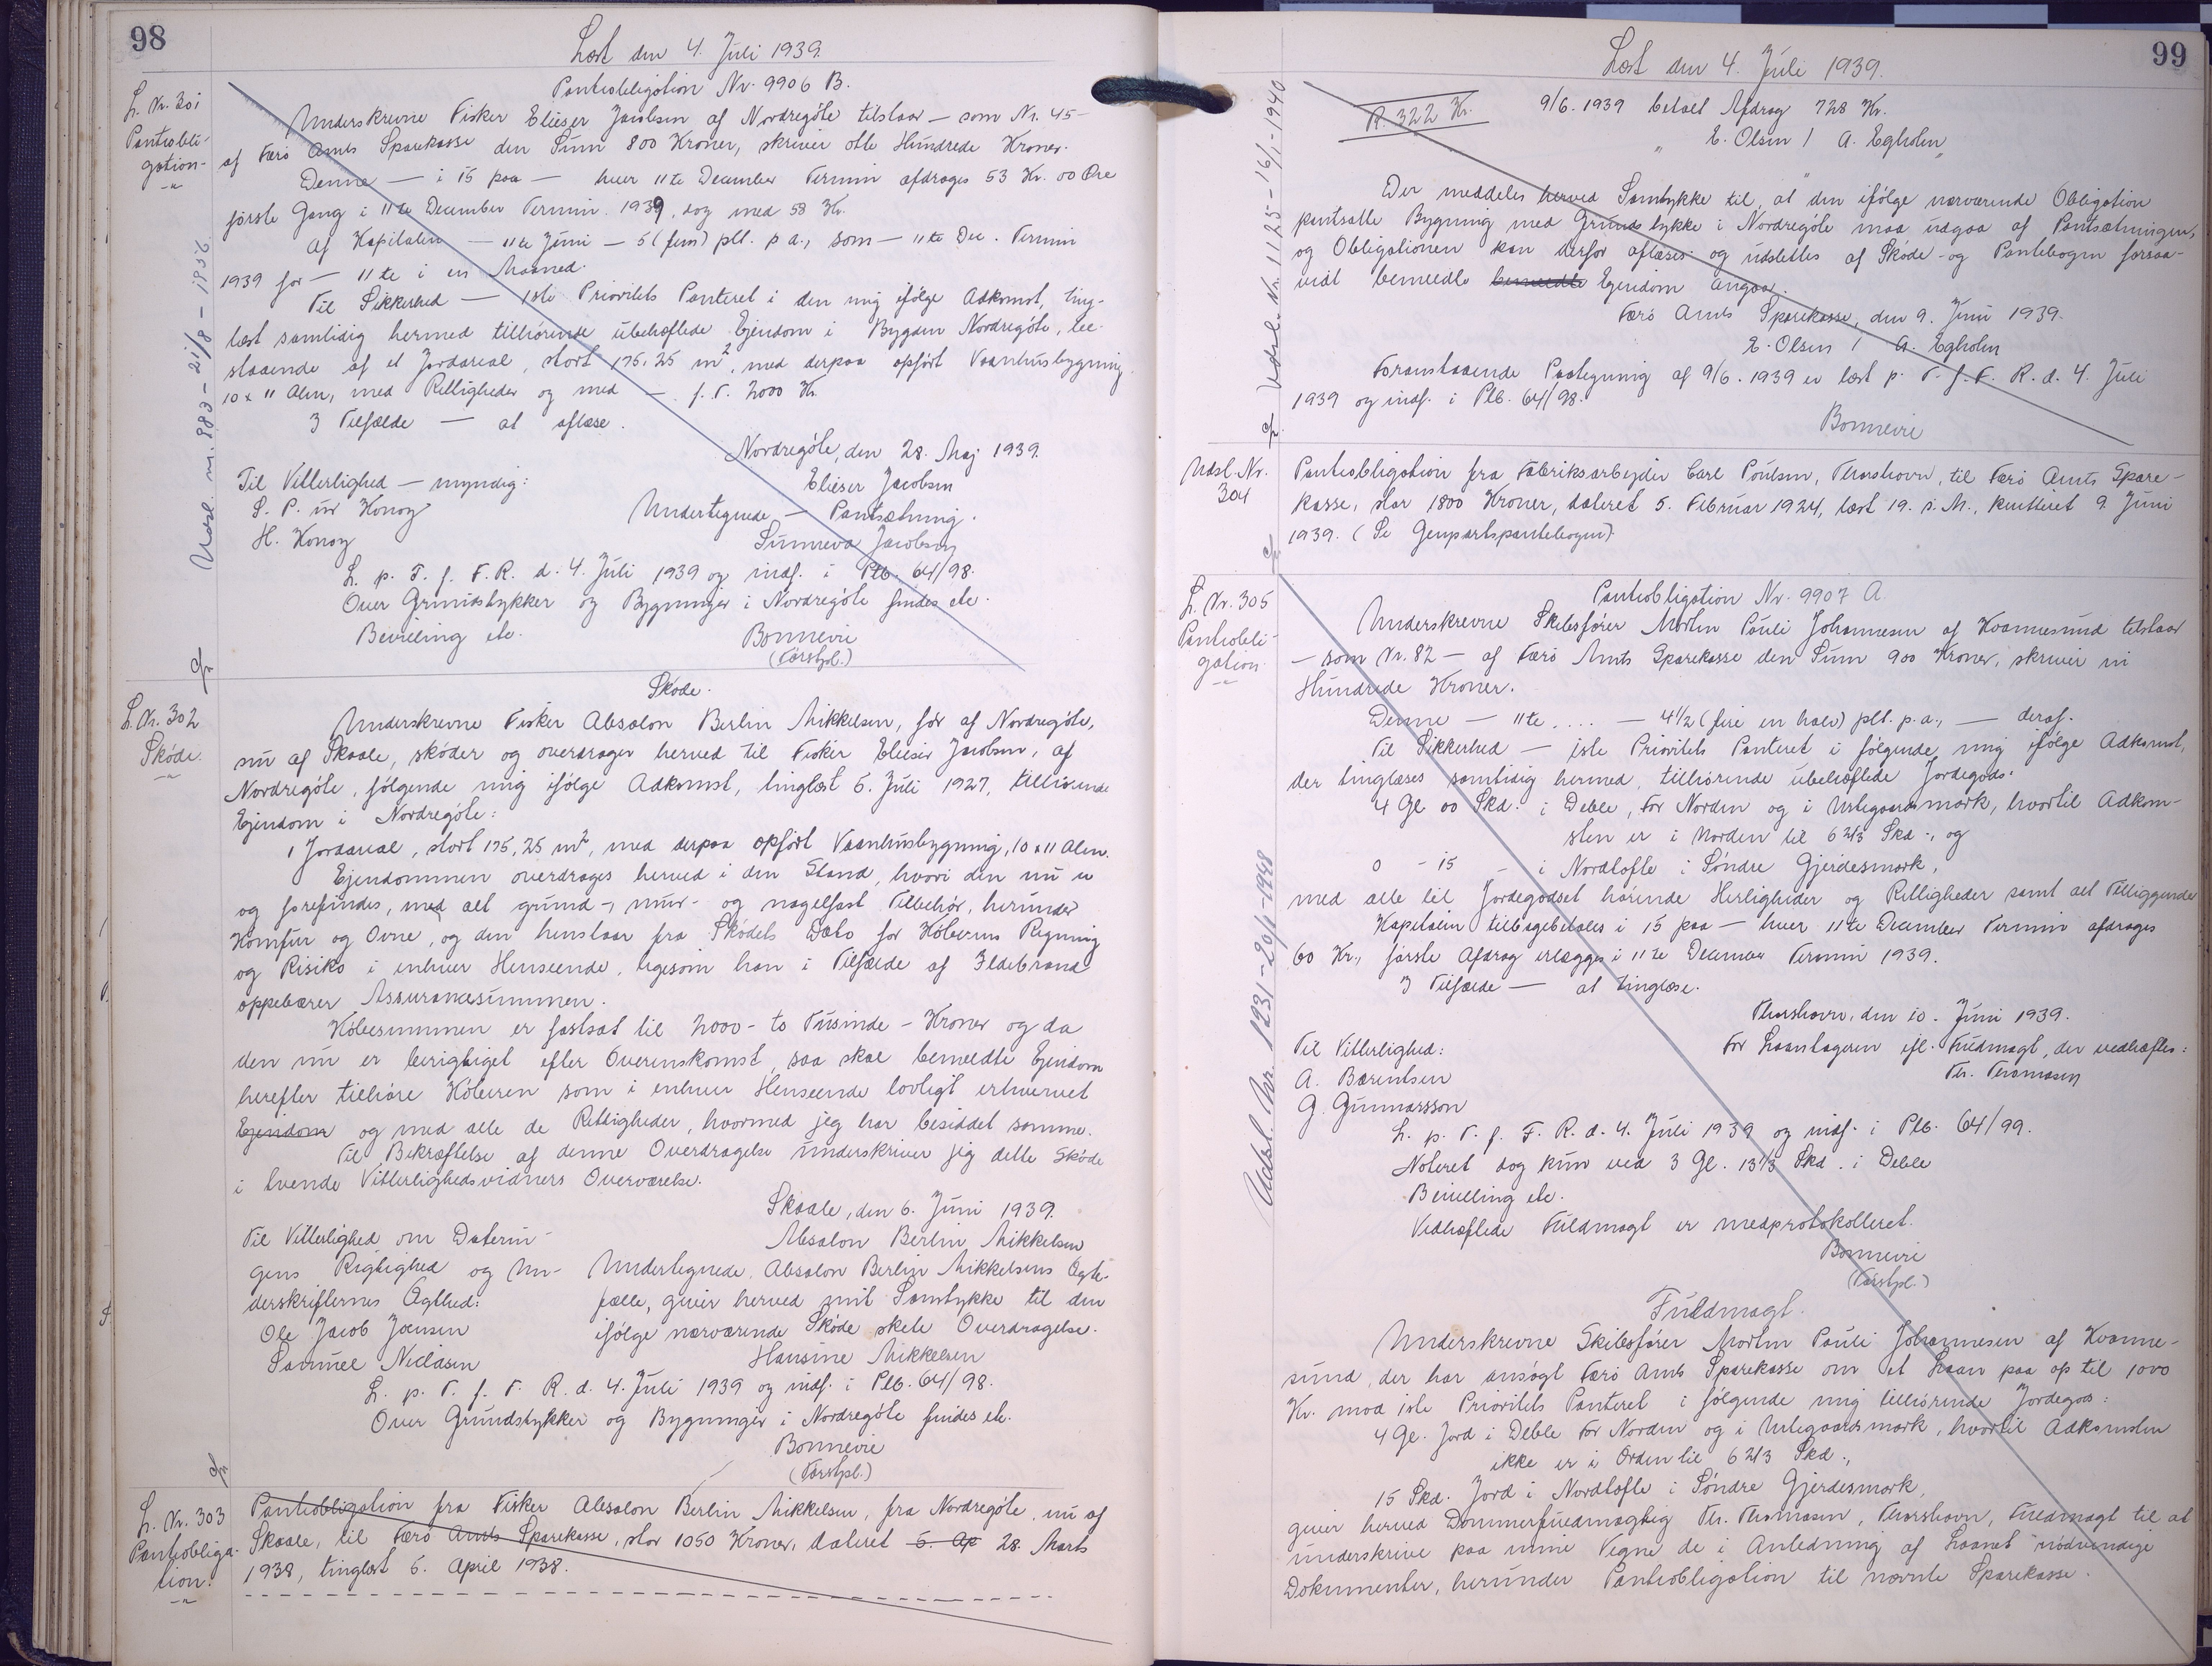 98
Læst den 4. Juli 1939.
L. Nr. 301
Pantobli-
gation
Pantobligation Nr. 9906 B.
Underskrevne Fisker Elieser Jacobsen af Nordregøte tilstaar — som Nr. 45 —
af Færø Amts Sparekasse den Sum 800 Kroner, skriver otte Hundrede Kroner.
Denne — i 15 paa — hver 11te December Termin afdrages 53 Kr. 00 Øre
første Gang i 11te December Termin 1939, dog med 58 Kr.
Af Kapitalen — 11te Juni — 5 (fem) pCt. p.a., som — 11te Dec. Termin
1939 for — 11te i en Maaned.
Til Sikkerhed — 1ste Prioritets Panteret i den mig ifølge Adkomst, ting-
læst samtidig hermed tilhørende ubehæftede Ejendom i Bygden Nordregøte, be-
staaende af et Jordareal, stort 175,25 m², med derpaa opført Vaanhusbygning
10 x 11 Alen, med Rettigheder og med — f. T. 2000 Kr.
I Tilfælde — at aflæse.
Nordregøte, den 28. Maj 1939.
Til Vitterlighed — myndig:
Elieser Jacobsen
S. P. úr Konoy
Undertegnede — Pantsætning.
H. Konoy
Sunneva Jacobsen
L. p. T. f. F. R. d. 4. Juli 1939 og indf. i Ptb. 64/98.
Over Grundstykker og Bygninger i Nordregøte findes etc.
Bevilling etc.
Bonnevie
(Førstpl.)
Udsl. nr. 883 - 21/8 - 1956
L. Nr. 302
Skøde.
Skøde.
Underskrevne Fisker Absalon Berlin Mikkelsen, før af Nordregøte,
nu af Skaale, skøder og overdrager herved til Fisker Elieser Jacobsen, af
Nordregøte, følgende mig ifølge Adkomst, tinglæst 6. Juli 1927, tilhørende
Ejendom i Nordregøte:
1 Jordareal, stort 175,25 m², med derpaa opført Vaanhusbygning, 10 x 11 Alen.
Ejendommen overdrages herved i den Stand, hvori den nu er
og forefindes, med alt grund-, mur- og nagelfast Tilbehør, herunder
Komfur og Ovne, og den henstaar fra Skødets Dato for Køberens Regning
og Risiko i enhver Henseende, ligesom han i Tilfælde af Ildebrand
oppebærer Assurancesummen.
Købesummen er fastsat til 2000 - to Tusinde - Kroner og da
den nu er berigtiget efter Overenskomst, saa skal bemeldte Ejendom
herefter tilhøre Køberen som i enhver Henseende lovligt erhvervet
Ejendom og med alle de Rettigheder, hvormed jeg har besiddet samme.
Til Bekræftelse af denne Overdragelse underskriver jeg dette Skøde
i tvende Vitterlighedsvidners Overværelse.
Skaale, den 6. Juni 1939.
Til Vitterlighed om Daterin-
Absalon Berlin Mikkelsen
gens Rigtighed og Un-
Undertegnede, Absalon Berlin Mikkelsens Ægte-
derskrifternes Ægthed:
fælle, giver herved mit Samtykke til den
Ole Jacob Joensen
ifølge nærværende Skøde skete Overdragelse.
Samuel Niclasen
Hansine Mikkelsen
L. p. T. f. F. R. d. 4. Juli 1939 og indf. i Ptb. 64/98.
Over Grundstykker og Bygninger i Nordregøte findes etc.
Bonnevie
(Førstpl.)
L. Nr. 303
Pantobliga-
tion.
Pantobligation fra Fisker Absalon Berlin Mikkelsen, fra Nordregøte, nu af
Skaale, til Færø Amts Sparekasse, stor 1050 Kroner, dateret 5. Ap 28. Marts
1938, tinglæst 5. April 1938.
99
Læst den 4. Juli 1939.
R. 322 Kr.
9/6. 1939 betalt Afdrag 728 Kr.
E. Olsen / A. Egholm
Der meddeles herved Samtykke til, at den ifølge nærværende Obligation
pantsatte Bygning med Grundstykke i Nordregøte maa udgaa af Pantsætningen,
og Obligationen kan derfor aflæses og udslettes af Skøde- og Pantebogen forsaa-
vidt bemeldte bemeldte Ejendom angaar.
Færø Amts Sparekasse, den 9. Juni 1939.
E. Olsen / A. Egholm
Foranstaaende Paategning af 9/6. 1939 er læst p. T. f. F. R. d. 4. Juli
1939 og indf. i Ptb. 64/98.
Bonnevie
Udsl. Nr. 1125 - 16/1 - 1940
Udsl. Nr.
304
Pantobligation fra Fabriksarbejder Carl Poulsen, Thorshavn, til Færø Amts Spare-
kasse, stor 1800 Kroner, dateret 5. Februar 1924, læst 19. s. M., kvitteret 9. Juni
1939. (Se Genpartspantebogen).
L. Nr. 305
Pantobli-
gation
Pantobligation Nr. 9907 A.
Underskrevne Skibsfører Morten Pauli Johannesen af Kvannesund tilstaar
— som Nr. 82 — af Færø Amts Sparekasse den Sum 900 Kroner, skriver ni
Hundrede Kroner.
Denne — 11te .... — 4½ (fire en halv) pCt. p.a., — deraf.
Til Sikkerhed — 1ste Prioritets Panteret i følgende mig ifølge Adkomst,
der tinglæses samtidig hermed, tilhørende ubehæftede Jordegods:
4 Gl 00 Skd. i Deble, Før Norden og i Urtegaardsmark, hvortil Adkom-
sten er i Norden til 6 2/3 Skd., og
0 - 15 - i Nordtofte i Søndre Gjerdesmark,
med alle til Jordegodset hørende Herligheder og Rettigheder samt alt Tilliggende
Kapitalen tilbagebetales i 15 paa — hver 11te December Termin afdrages
60 Kr., første Afdrag erlægges i 11te December Termin 1939.
I Tilfælde — at tinglæse.
Thorshavn, den 10. Juni 1939.
Til Vitterlighed:
For Laantageren ifl. Fuldmagt, der vedhæftes:
A. Bærentsen
Th. Thomasen
G. Gunnarsson
L. p. T. f. F. R. d. 4. Juli 1939 og indf. i Ptb. 64/99.
Noteret dog kun ved 3 Gl. 13 1/3 Skd. i Deble
Bevilling etc.
Vedhæftede Fuldmagt er medprotokolleret.
Bonnevie
(Førstpl.)
Udsl. Nr. 1231 - 20/1 - 1948
Fuldmagt.
Underskrevne Skibsfører Morten Pauli Johannesen af Kvanne-
sund, der har ansøgt Færø Amts Sparekasse om et Laan paa op til 1000
Kr. mod 1ste Prioritets Panteret i følgende mig tilhørende Jordegods:
4 Gl. Jord i Deble Før Norden og i Urtegaardsmark, hvortil Adkomsten
ikke er i Orden til 6 2/3 Skd.,
15 Skd. Jord i Nordtofte i Søndre Gjerdesmark,
giver herved Dommerfuldmægtig Th. Thomasen, Thorshavn, Fuldmagt til at
underskrive paa mine Vegne de i Anledning af Laanet nødvendige
Dokumenter, herunder Pantobligation til nævnte Sparekasse.